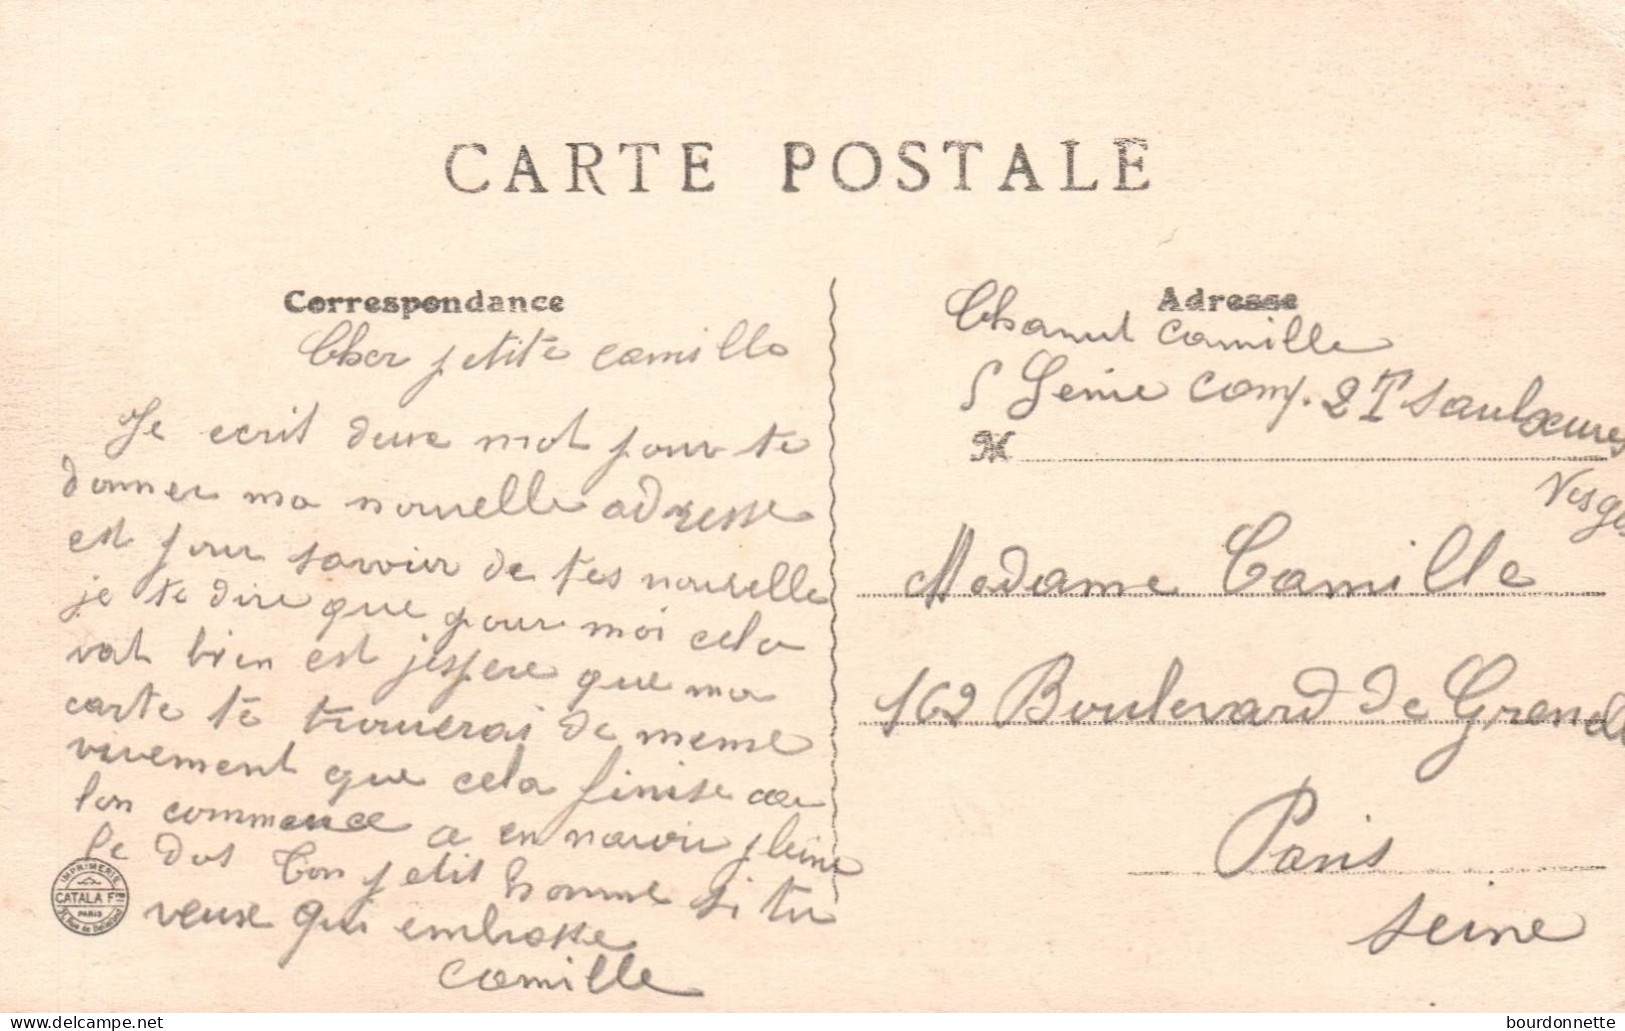 CARTE POSTALE
Correspondance
Cher petite camille
Je ecrit deux mot pour te
donner ma nouvelle adresse
est pour savoir de tes nouvelle
je te dire que pour moi cela
vat bien est jespere que ma
carte te trouverai de meme
vivement que cela finise car
lon commence a en navoir pleine
le dos Ton petit homme si tu
veux qui embrasse
Camille
IMPRIMERIE
CATALA Fres
PARIS
Adresse
Chanut Camille
5 Genie Comp. 2T Saulxures
Vosges
M
Madame Camille
162 Boulevard de Grenelle
Paris
Seine
delcampe.net
bourdonnette